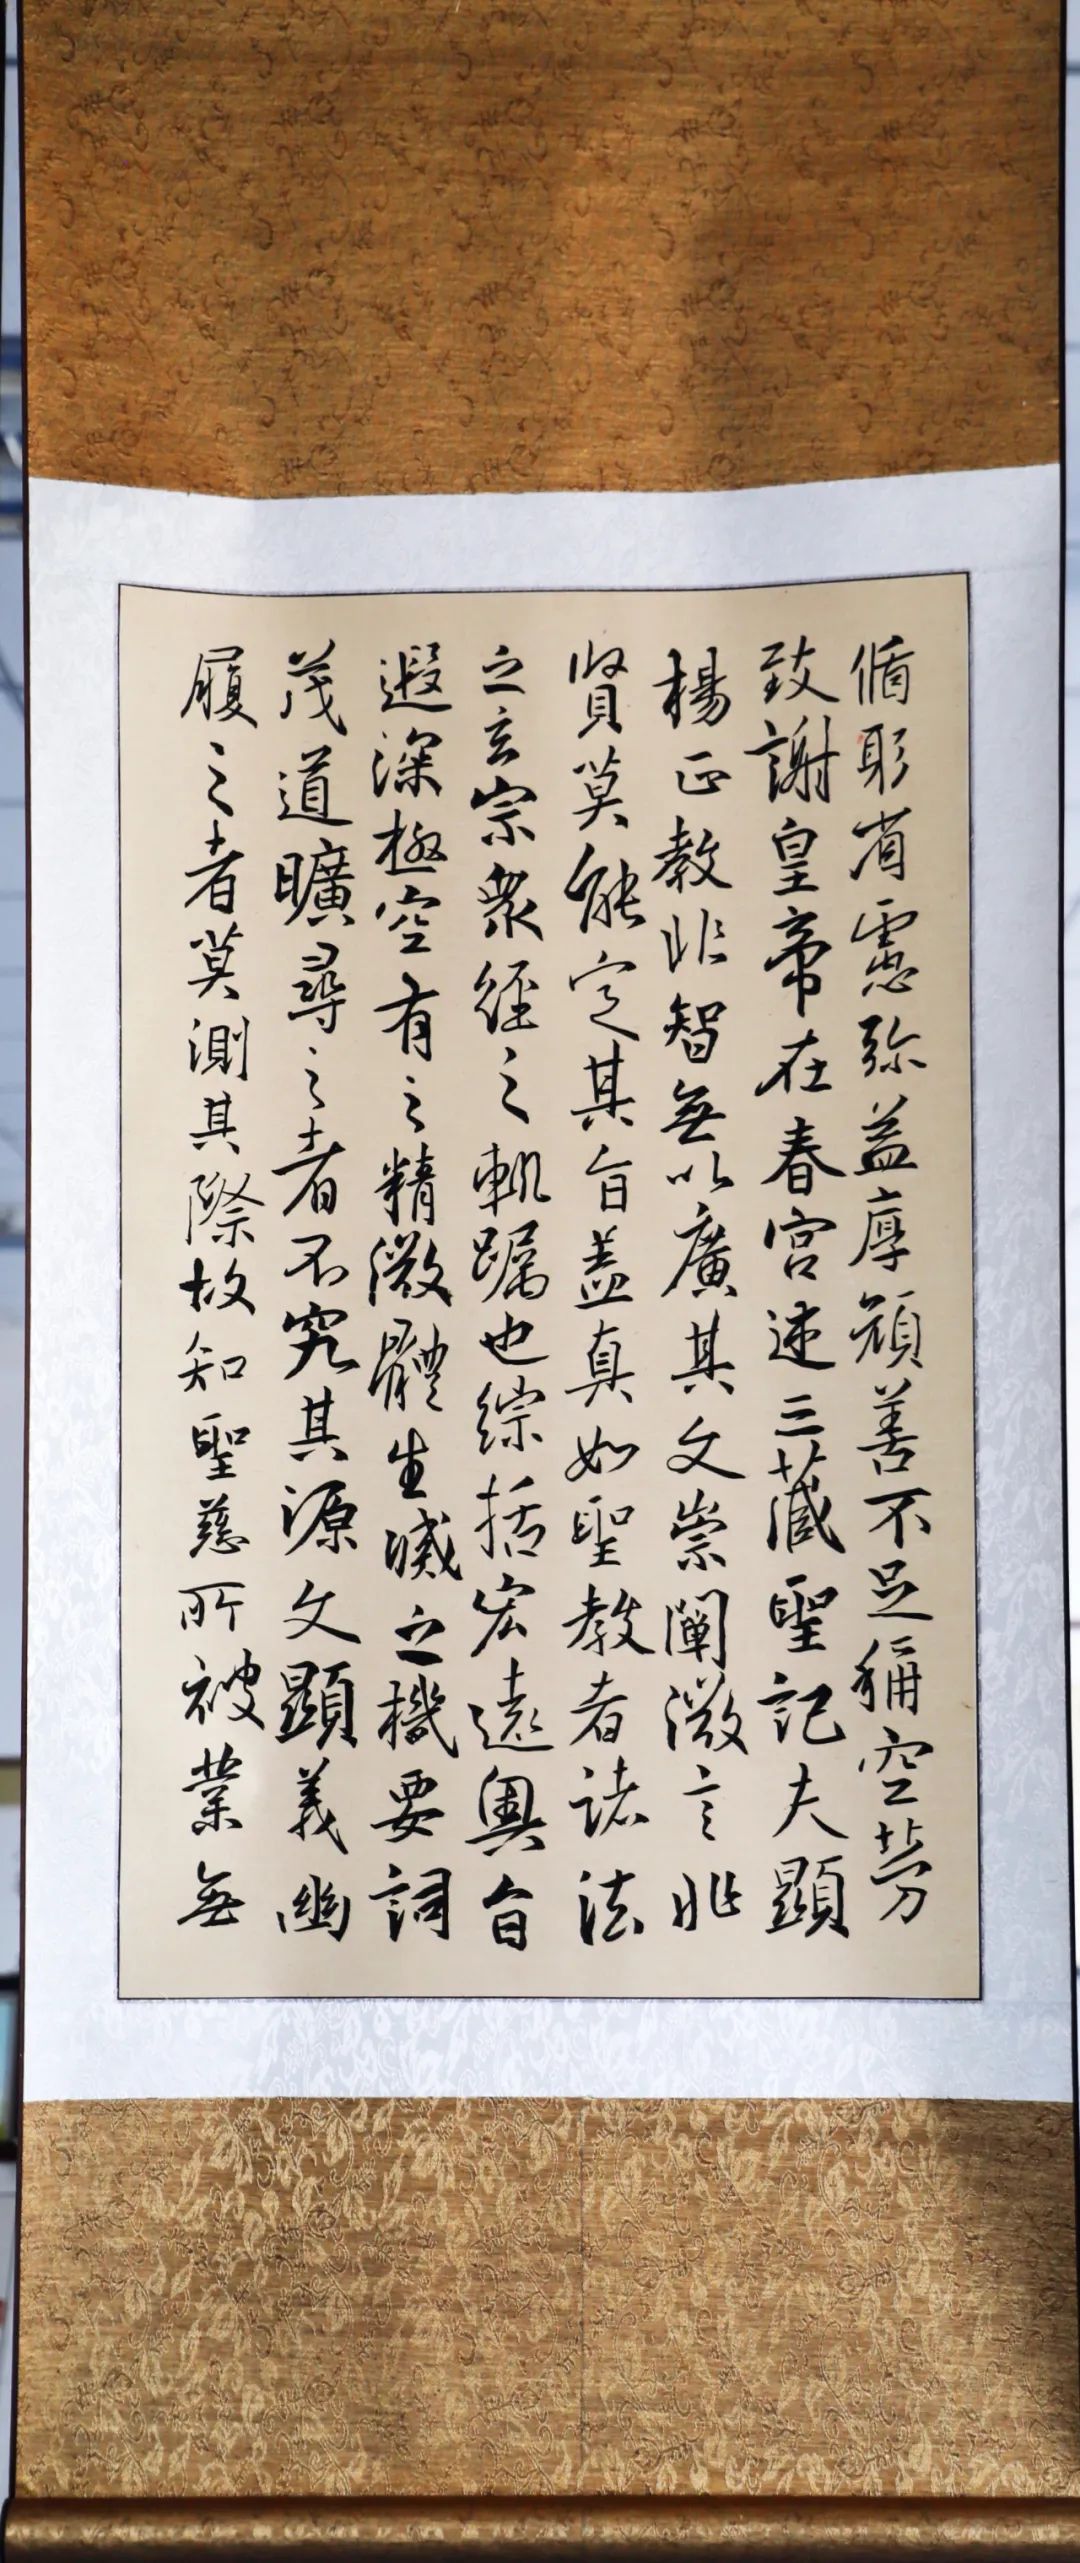 循躬省慮弥益厚顔善不足稱空勞
致謝皇帝在春宮述三藏聖記夫顯
楊正教非智無以廣其文崇闡微言非
賢莫能定其旨蓋真如聖教者諸法
之玄宗衆經之軌躅也綜括宏遠奧旨
遐深極空有之精微體生滅之機要詞
茂道曠尋之者不究其源文顯義幽
履之者莫測其際故知聖慈所被業無